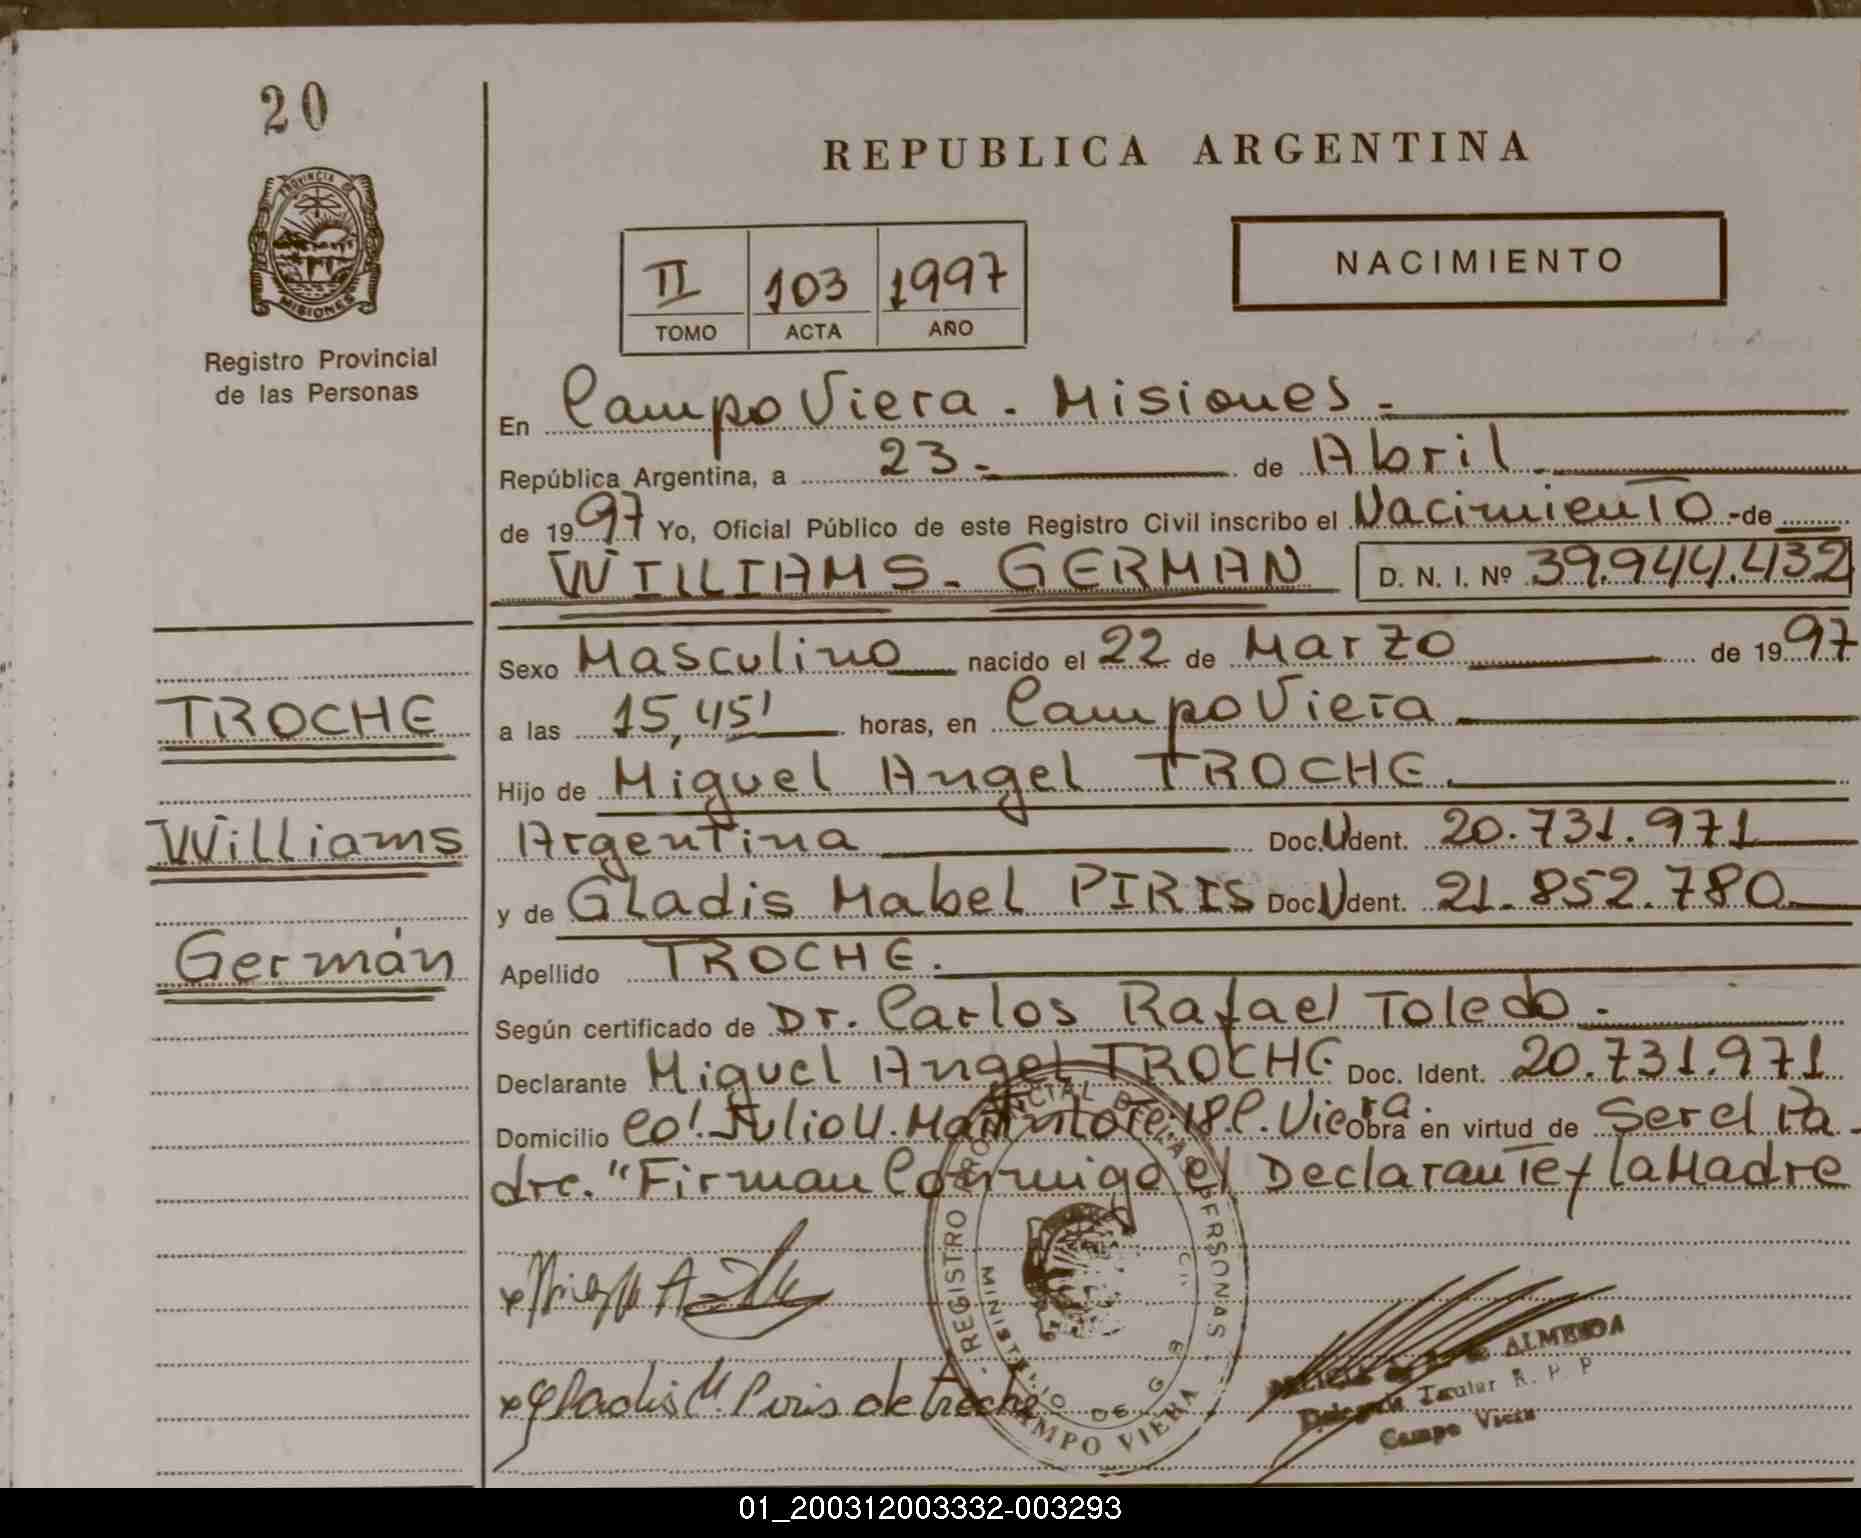 20
PROVINCIA DE
MISIONES
Registro Provincial
de las Personas
TROCHE
Williams
Germán
REPUBLICA ARGENTINA
II 103 1997
TOMO ACTA AÑO
NACIMIENTO
En Campo Viera - Misiones -
República Argentina, a 23 - de Abril
de 1997 Yo, Oficial Público de este Registro Civil inscribo el Nacimiento - de
WILLIAMS - GERMAN D. N. I. Nº 39.944.432
Sexo Masculino nacido el 22 de Marzo de 1997
a las 15,45' horas, en Campo Viera
Hijo de Miguel Angel TROCHE.
Argentina Doc. Udent. 20.731.971
y de Gladis Mabel PIRIS Doc Udent. 21.852.780
Apellido TROCHE.
Según certificado de Dr. Carlos Rafael Toledo.
Declarante Miguel Angel TROCHE Doc. Ident. 20.731.971
Domicilio Co! Julio U. Lote 18 C. Viera. Obra en virtud de Ser el Pa-
dre. "Firman Conmigo el Declarante y la Madre
REGISTRO PROVINCIAL DE LAS PERSONAS
MINISTERIO DE G
CAMPO VIERA
Gladis M. Piris de Troche
de ALMEIDA
Delegada Titular R. P. P
Campo Viera
01_200312003332-003293